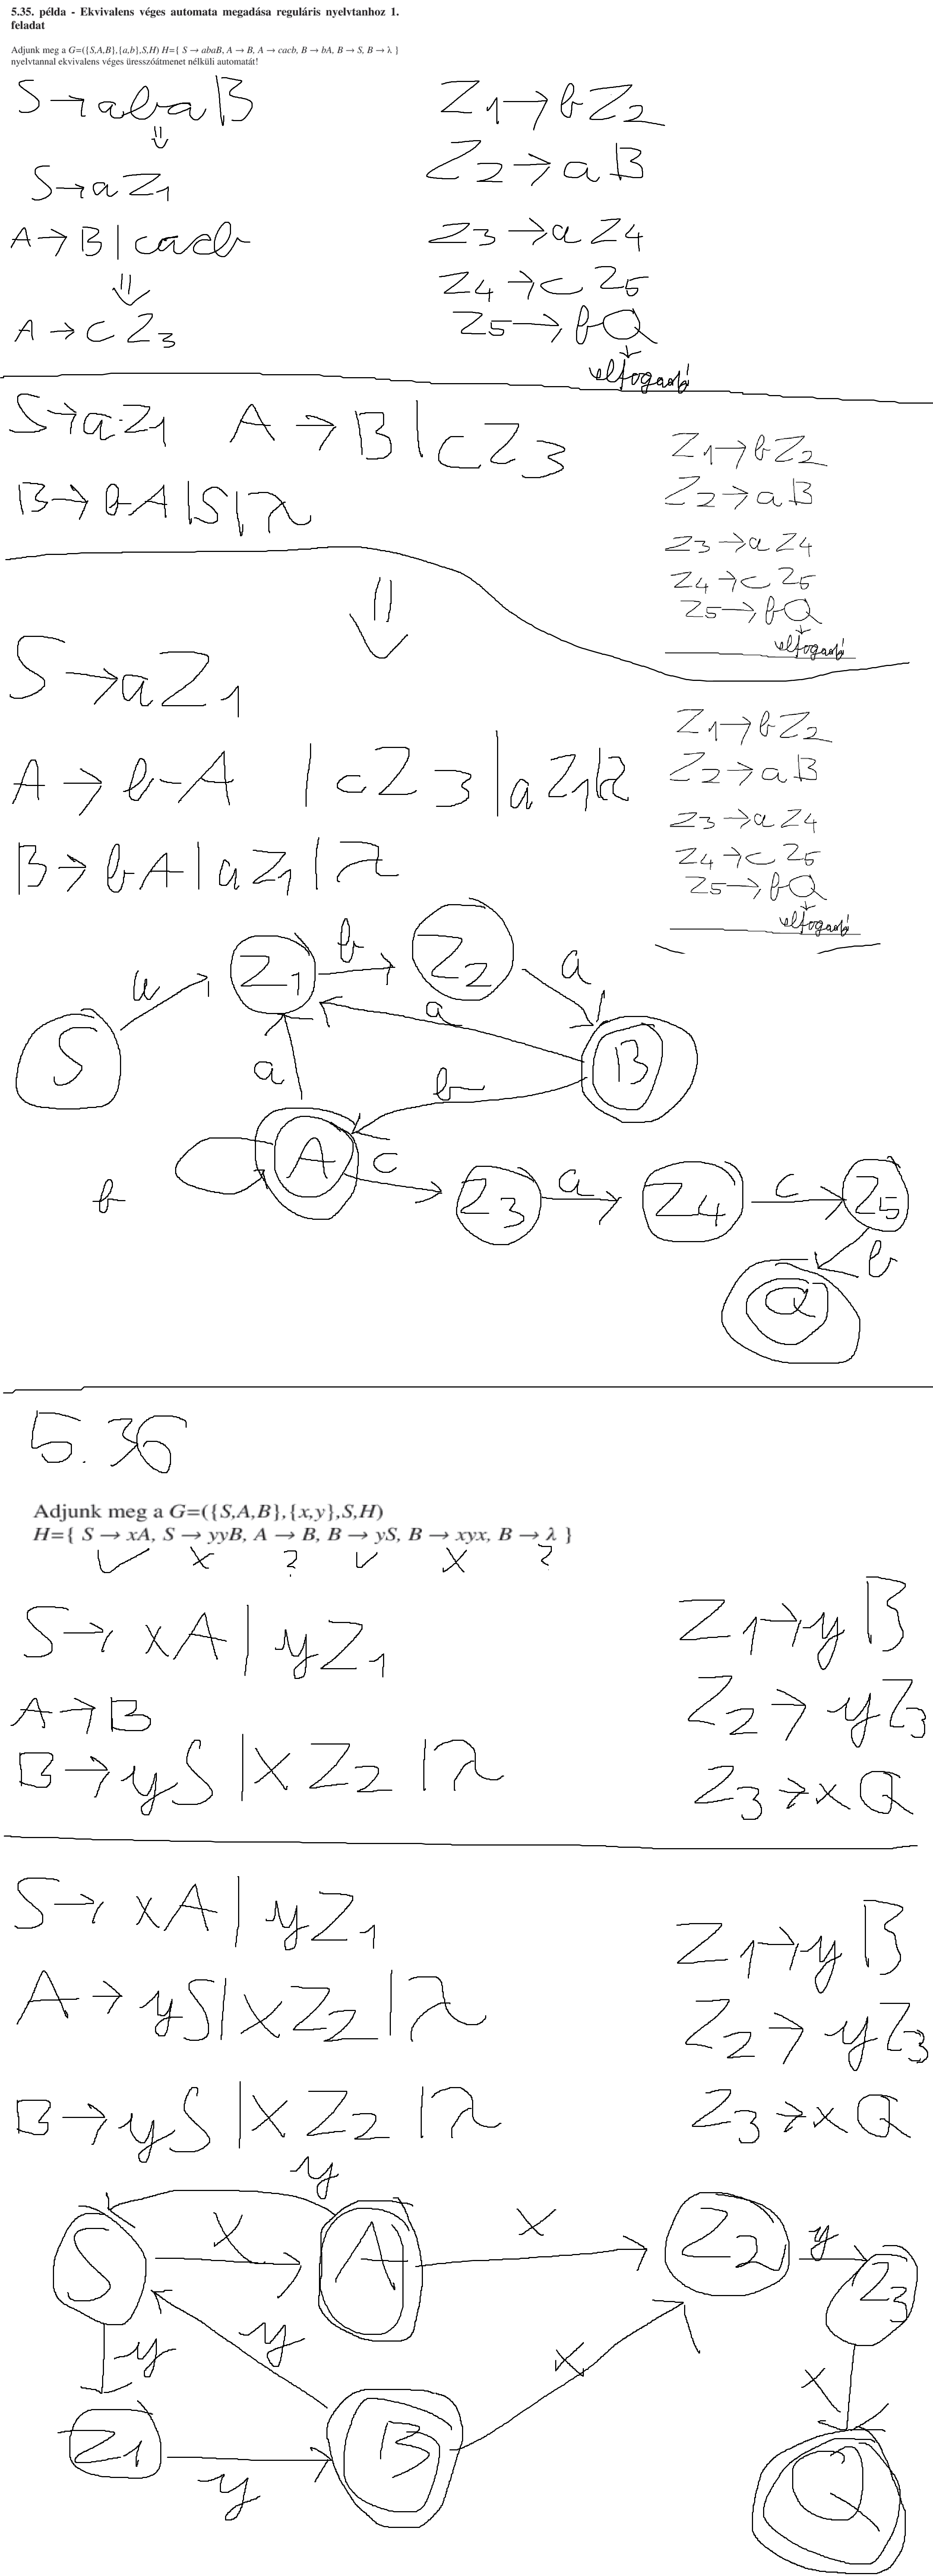 5.35. példa - Ekvivalens véges automata megadása reguláris nyelvtanhoz 1.
feladat
Adjunk meg a G=({S,A,B},{a,b},S,H) H={ S → abaB, A → B, A → cacb, B → bA, B → S, B → λ }
nyelvtannal ekvivalens véges üresszóátmenet nélküli automatát!
S → abaB
⇓
S → aZ1
A → B | cacb
⇓
A → cZ3
Z1 → bZ2
Z2 → aB
Z3 → aZ4
Z4 → cZ5
Z5 → bQ
↓
elfogadó
S → aZ1 A → B | cZ3
B → bA | S | λ
Z1 → bZ2
Z2 → aB
Z3 → aZ4
Z4 → cZ5
Z5 → bQ
↓
elfogadó
⇓
S → aZ1
A → bA | cZ3 | aZ1 | λ
B → bA | aZ1 | λ
Z1 → bZ2
Z2 → aB
Z3 → aZ4
Z4 → cZ5
Z5 → bQ
↓
elfogadó
S a Z1 b Z2 a B
a a b
b A c Z3 a Z4 c Z5
b
Q
5.36
Adjunk meg a G=({S,A,B},{x,y},S,H)
H={ S → xA, S → yyB, A → B, B → yS, B → xyx, B → λ }
✓ x ? ✓ x ?
S → xA | yZ1
A → B
B → yS | xZ2 | λ
Z1 → yB
Z2 → yZ3
Z3 → xQ
S → xA | yZ1
A → yS | xZ2 | λ
B → yS | xZ2 | λ
Z1 → yB
Z2 → yZ3
Z3 → xQ
y
S x A x Z2 y Z3
y y x x
Z1 y B Q